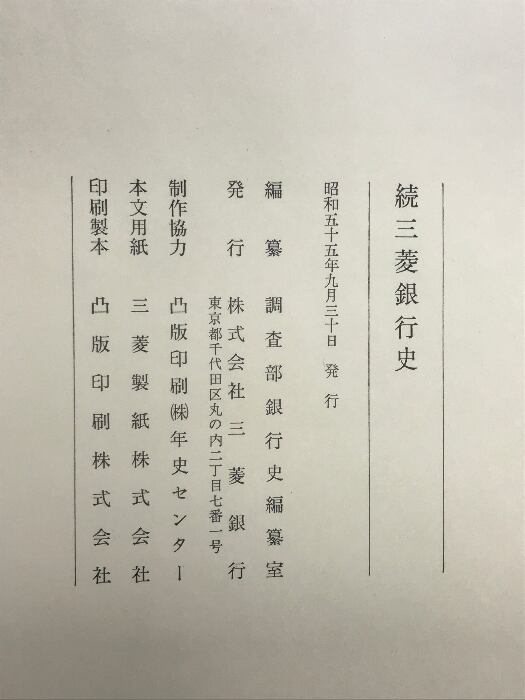 続三菱銀行史
昭和五十五年九月三十日 発行
編纂 調査部銀行史編纂室
発行 株式会社三菱銀行
東京都千代田区丸の内二丁目七番一号
制作協力 凸版印刷㈱年史センター
本文用紙 三菱製紙株式会社
印刷製本 凸版印刷株式会社